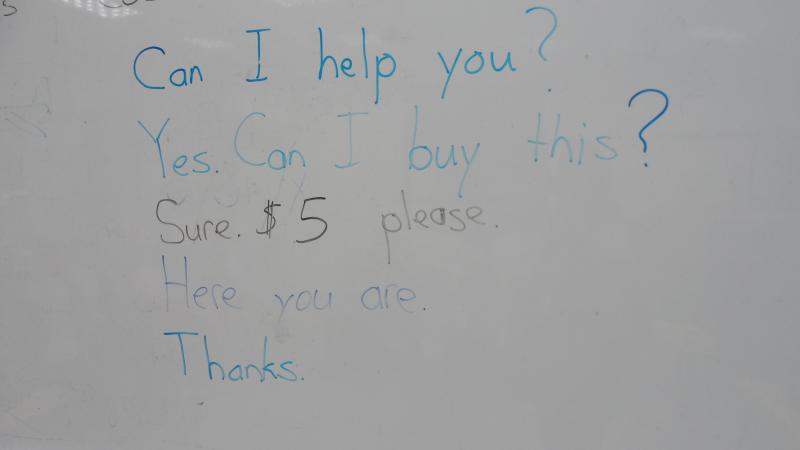 Can I help you?
Yes. Can I buy this?
Sure. $5 please.
Here you are.
Thanks.